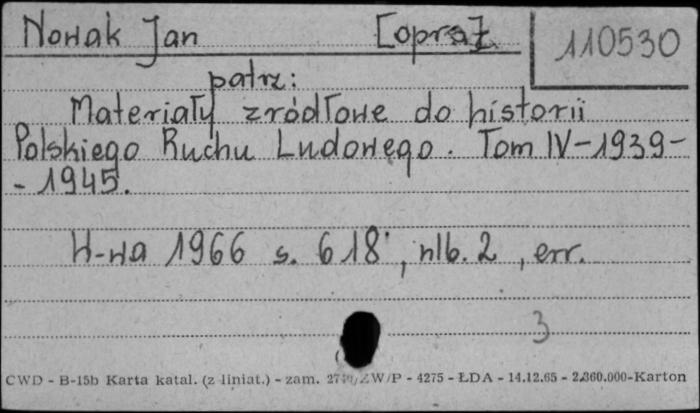 Nowak Jan [oprac].
110530
patrz:
Materiały zródłowe do historii
Polskiego Ruchu Ludowego. Tom IV-1939-
-1945.
W-wa 1966 s. 618, nlb. 2, err.
3
CWD - B-15b Karta katal. (z liniat.) - zam. ZW/P - 4275 - ŁDA - 14.12.65 - 2.360.000-Karton